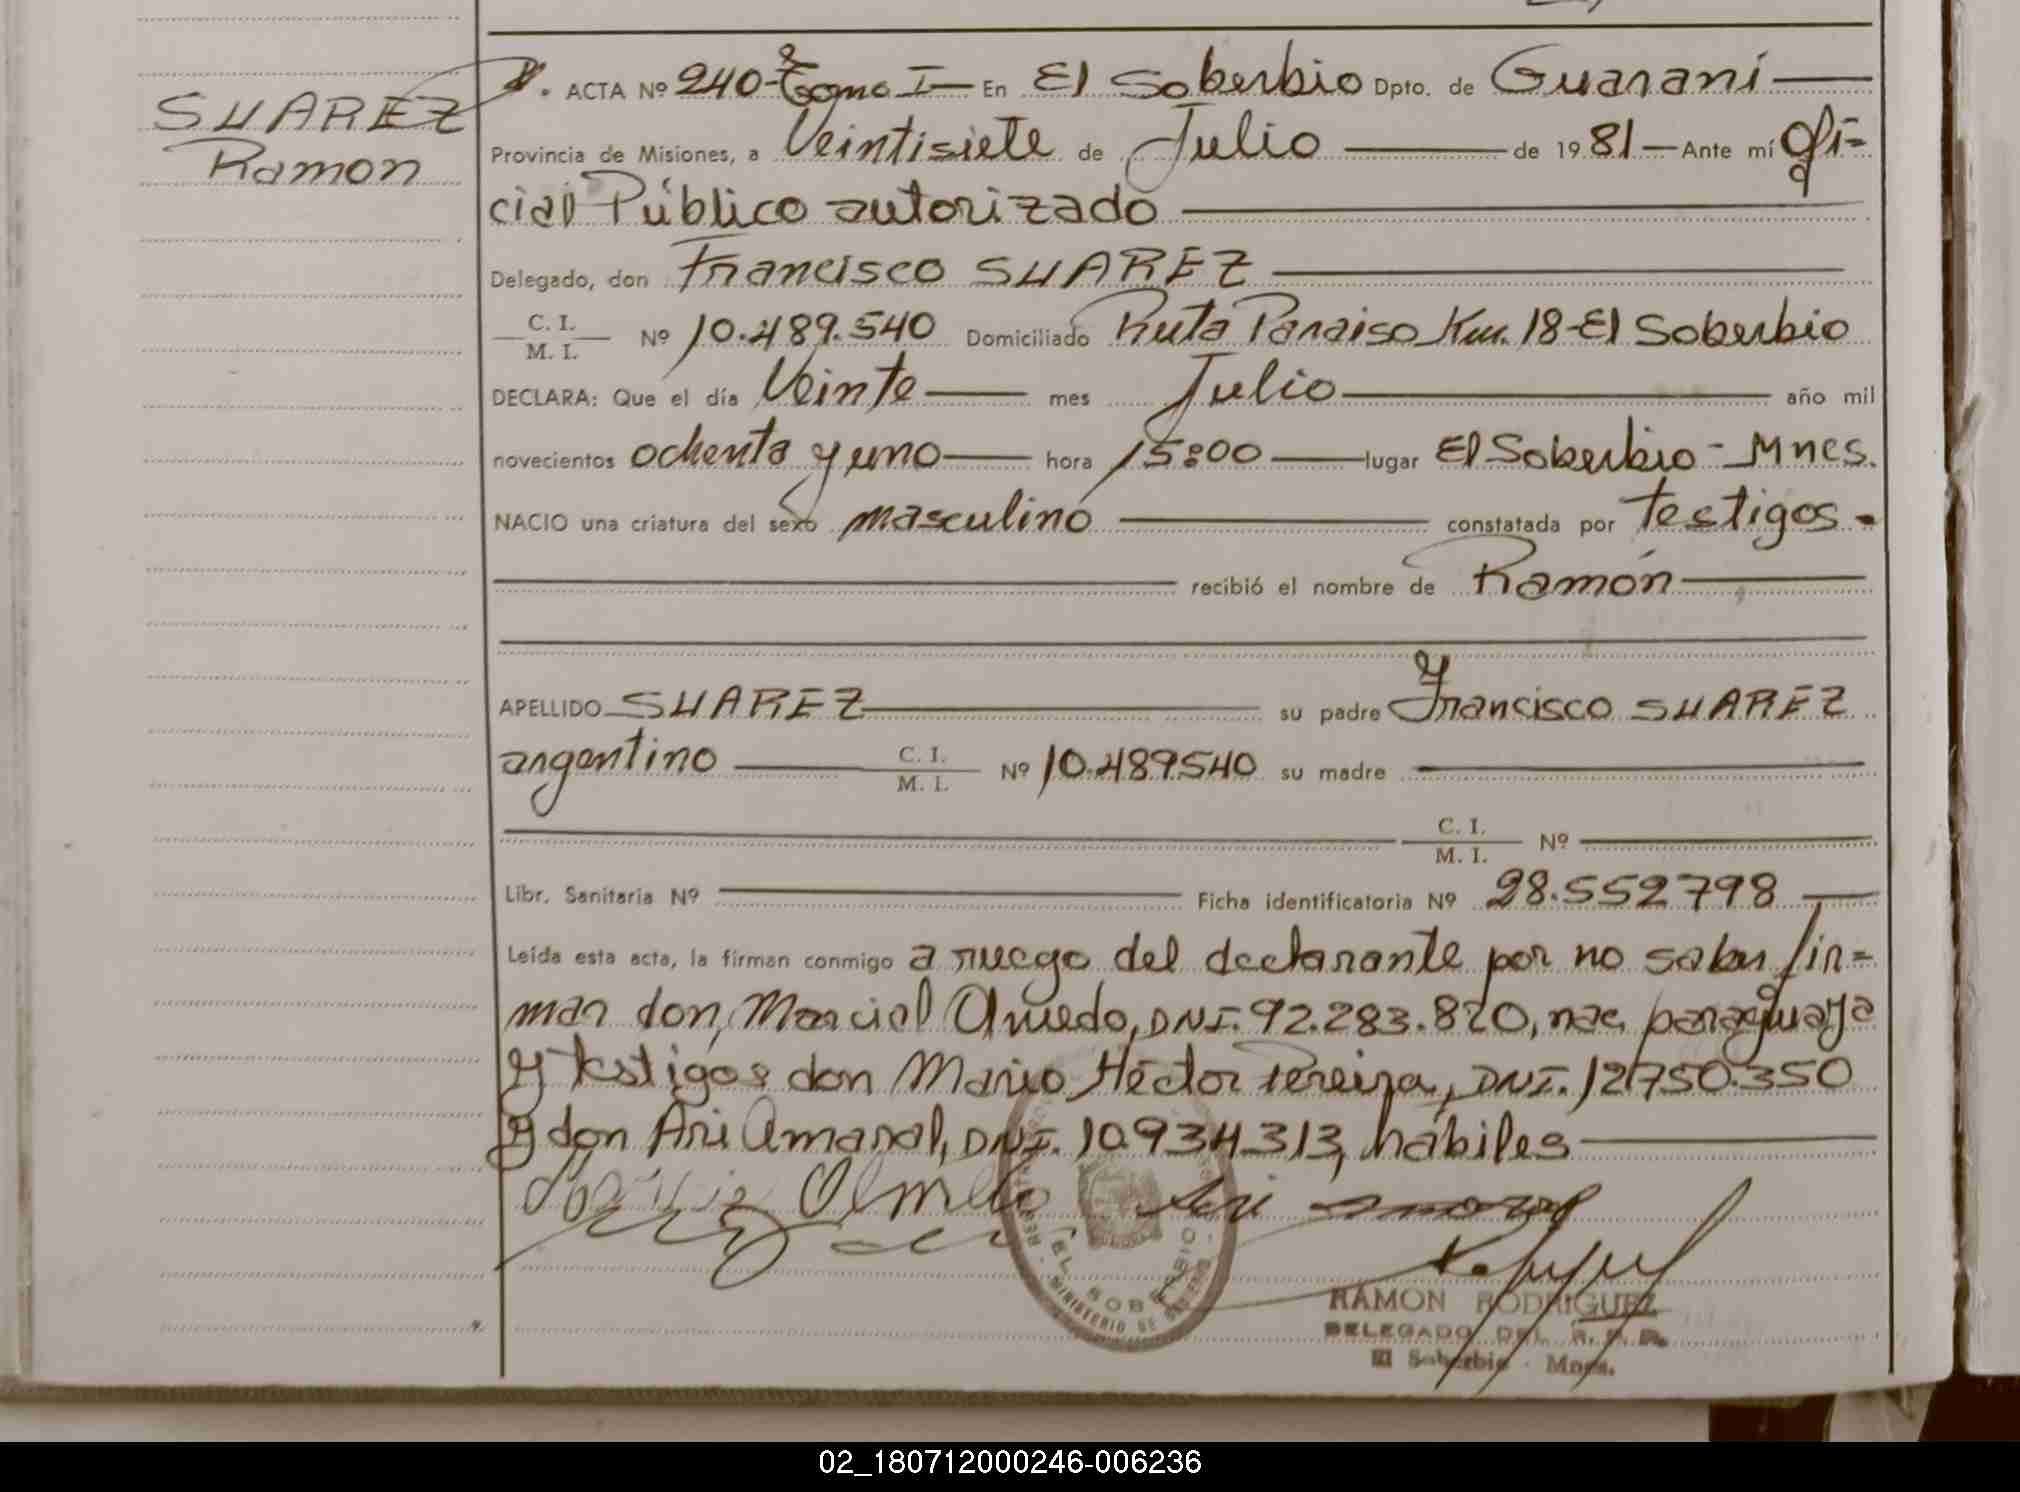 SUAREZ
Ramon
ACTA Nº 240- Tomo I- En El Soberbio Dpto. de Guaraní
Provincia de Misiones, a Veintisiete de Julio de 1981 Ante mí Ofi=
cial Público autorizado
Delegado, don Francisco SUAREZ
C. I.
M. I. Nº 10.489.540 Domiciliado Ruta Paraiso Km. 18-El Soberbio
DECLARA: Que el día Veinte mes Julio año mil
novecientos ochenta y uno hora 15:00 lugar El Soberbio - Mnes.
NACIO una criatura del sexo masculino constatada por testigos.
recibió el nombre de Ramón
APELLIDO SUAREZ su padre Francisco SUAREZ
argentino C. I.
M. I. Nº 10.489540 su madre
C. I.
M. I. Nº
Libr. Sanitaria Nº Ficha identificatoria Nº 28.552798
Leída esta acta, la firman conmigo a ruego del declarante por no saber fir=
mar don, Marcial Olmedo, DNI. 92.283.820, nac. paraguaya
y testigos don Mario Héctor Pereira, DNI. 12750.350
y don Ari Amaral, DNI. 10.934313, hábiles
Olmedo Ari Amaral
EL SOBERBIO
MINISTERIO DE GOBIERNO
RAMON RODRIGUEZ
DELEGADO DEL R. P. P.
El Soberbio - Mnes.
02_180712000246-006236